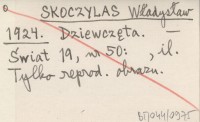 SKOCZYLAS Władysław
1924. Dziewczęta. —
Świat 19, nr 50: , il.
Tylko reprod. obrazu.
BJ/044/0975